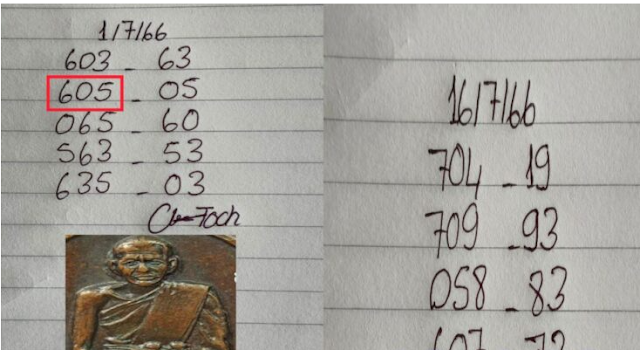 1/7/66
603 - 63
605 - 05
065 - 60
563 - 53
635 - 03
16/7/66
704 - 19
709 - 93
058 - 83
607 - 72